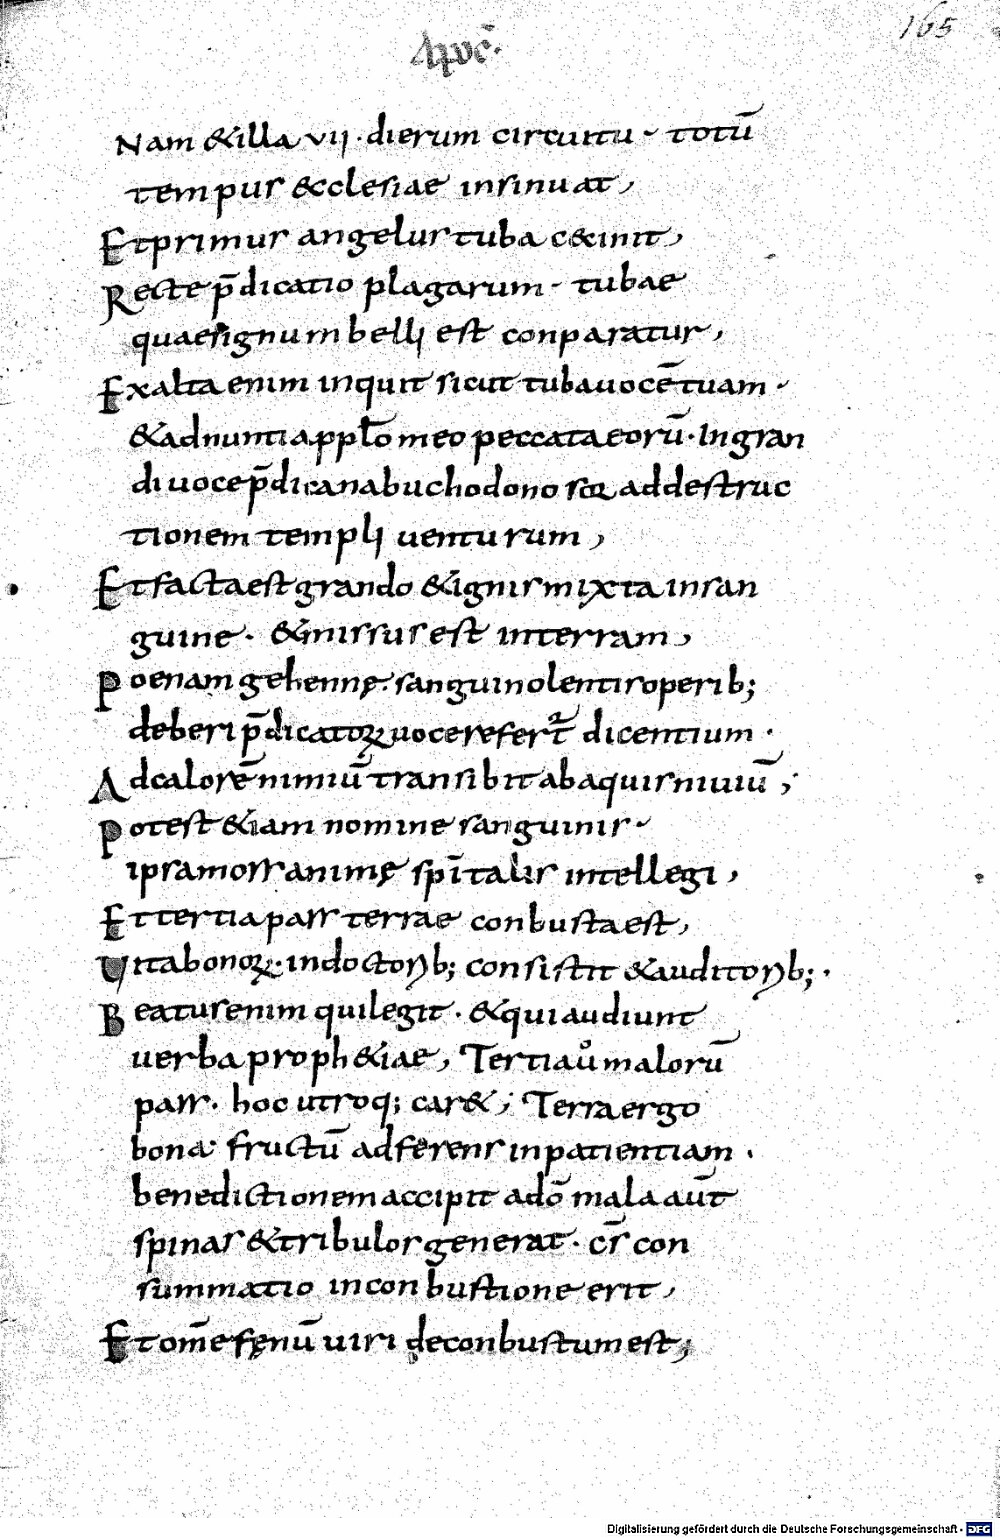 165
Apoc̄.
Nam & illa vii · dierum circuitu · totū
tempus &cclesiae insinuat,
Et primus angelus tuba c&cinit,
Recte p̄dicatio plagarum · tubae
quae signum belli est conparatur,
Exalta enim inquit sicut tuba uocē tuam ·
& adnuntia pplō meo peccata eorū · In gran
di uoce p̄dica nabuchodonosor ad destruc
tionem templi uenturum,
Et facta est grando & ignis mixta in san
guine · & missus est in terram,
Poenam gehennę · sanguinolentis operib;
deberi p̄dicatoꝝ uoce refert̄ dicentium ·
Ad calorē nimiū transibit ab aquis niuiū ;
Potest &iam nomine sanguinis ·
ipsa mors animę sp̄italis intellegi,
Et tertia pars terrae conbusta est,
Vita bonoꝝ · in doctorib; consistit & auditorib; ·
Beatus enim qui legit · & qui audiunt
uerba proph&iae, Tertia aů malorū
pars · hoc utroq; car& ; Terra ergo
bona · fructū adferens in patientiam ·
benedictionem accipit a dō mala aūt
spinas & tribulos generat · cs̄ con
summatio in conbustione erit,
Et om̄e fęnū uiri deconbustum est ;
Digitalisierung gefördert durch die Deutsche Forschungsgemeinschaft - DFG